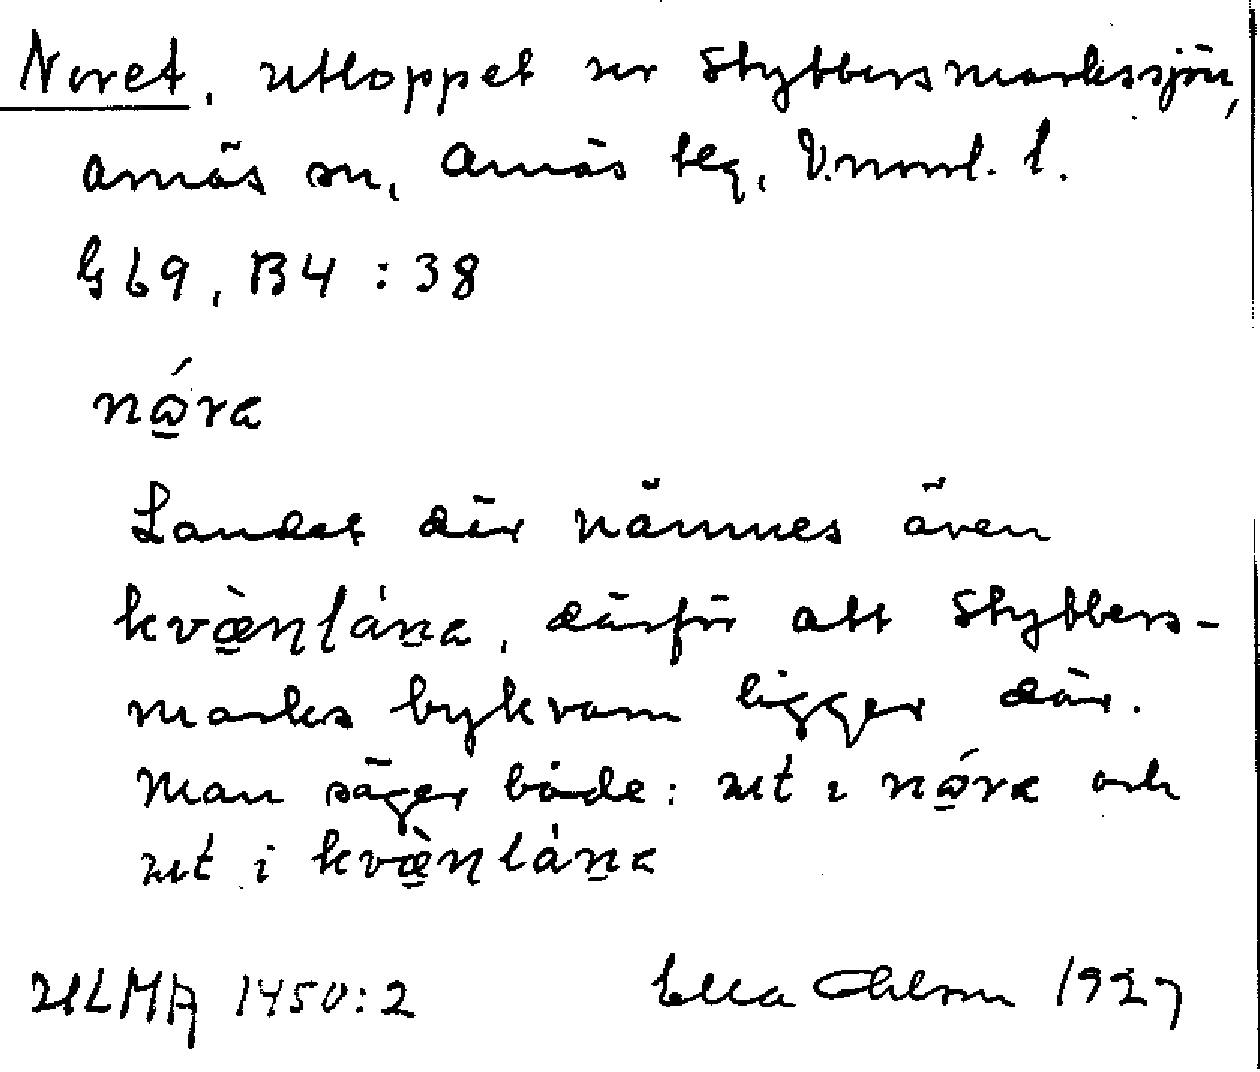 Noret, utloppet ur Stybbersmarkssjön,
Arnäs sn, Arnäs tlg, V.norrl. l.
G 69, B4 : 38
nǿ̱ra
Landet där nämnes även
kvæ̱̀ṇlána, därför att Stybbers-
marks bykvarn ligger där.
Man säger både: ut i nǿ̱ra och
ut i kvæ̱̀ṇlána
ULMA 1450:2 Ella Ohlson 1927